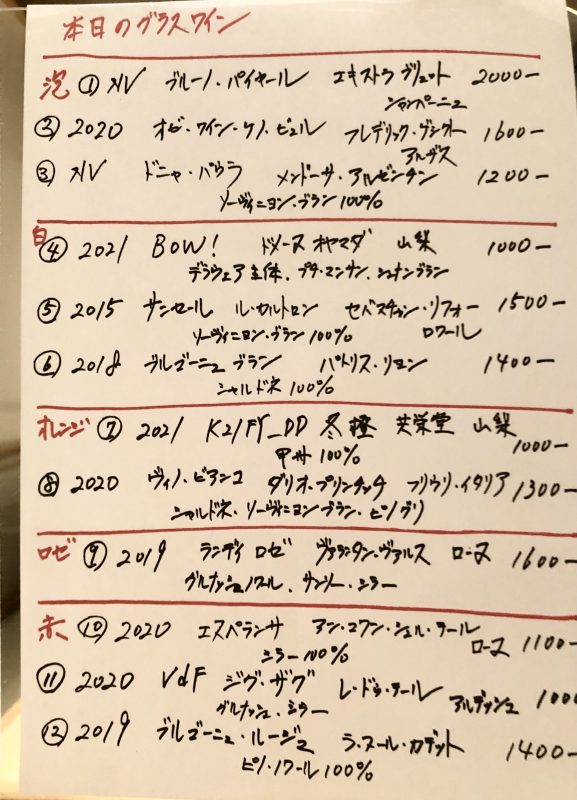 本日のグラスワイン
泡 ① NV ブルーノ・パイヤール エキストラ ブリュット 2000-
シャンパーニュ
② 2020 オビ・ワイン・ケノ・ビュル フレデリック・ゲシクト 1600-
アルザス
③ NV ドニャ・パウラ メンドーサ・アルゼンチン 1200-
ソーヴィニヨン・ブラン 100%
白 ④ 2021 BOW! ドメーヌ オヤマダ 山梨 1000-
デラウェア主体、プチ・マンサン、シュナンブラン
⑤ 2015 サンセール ル・カルトロン セバスチャン・リフォー 1500-
ソーヴィニヨン・ブラン 100% ロワール
⑥ 2018 ブルゴーニュ ブラン パトリス・リヨン 1400-
シャルドネ 100%
オレンジ ⑦ 2021 K21FY_DD 冬橙 共栄堂 山梨
甲州 100% 1000-
⑧ 2020 ヴィノ・ビアンコ ダリオ・プリンチッチ フリウリ・イタリア 1300-
シャルドネ・ソーヴィニヨンブラン・ピノグリ
ロゼ ⑨ 2019 ランディ ロゼ ヴァランタン・ヴァルス ローヌ 1600-
グルナッシュノワール、サンソー・シラー
赤 ⑩ 2020 エスペランサ アン・コワン・シュル・テール 1100-
シラー 100% ローヌ
⑪ 2020 VdF ジグ・ザグ レ・ドゥ・テール アルデッシュ 1000
グルナッシュ・シラー
⑫ 2019 ブルゴーニュ・ルージュ ラ・スール・カデット 1400-
ピノ・ノワール 100%